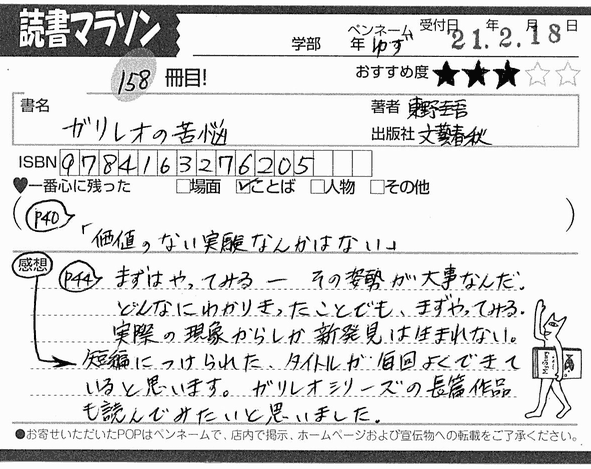 読書マラソン
学部 年 ペンネーム ゆず 受付日 21.年2.月18日
158 冊目! おすすめ度 ★★★☆☆
書名 著者 東野圭吾
ガリレオの苦悩 出版社 文藝春秋
ISBN 9784163276205
♥一番心に残った □場面 ☑ことば □人物 □その他
(P40)
「価値のない実験なんかはない」
感想 P44 まずはやってみる ー その姿勢が大事なんだ。
どんなにわかりきったことでも、まずやってみる。
実際の現象からしか新発見は生まれない。
短編につけられた、タイトルが毎回よくできて
いると思います。ガリレオシリーズの長篇作品
も読んでみたいと思いました。
●お寄せいただいたPOPはペンネームで、店内で掲示、ホームページおよび宣伝物への転載をご了承ください。